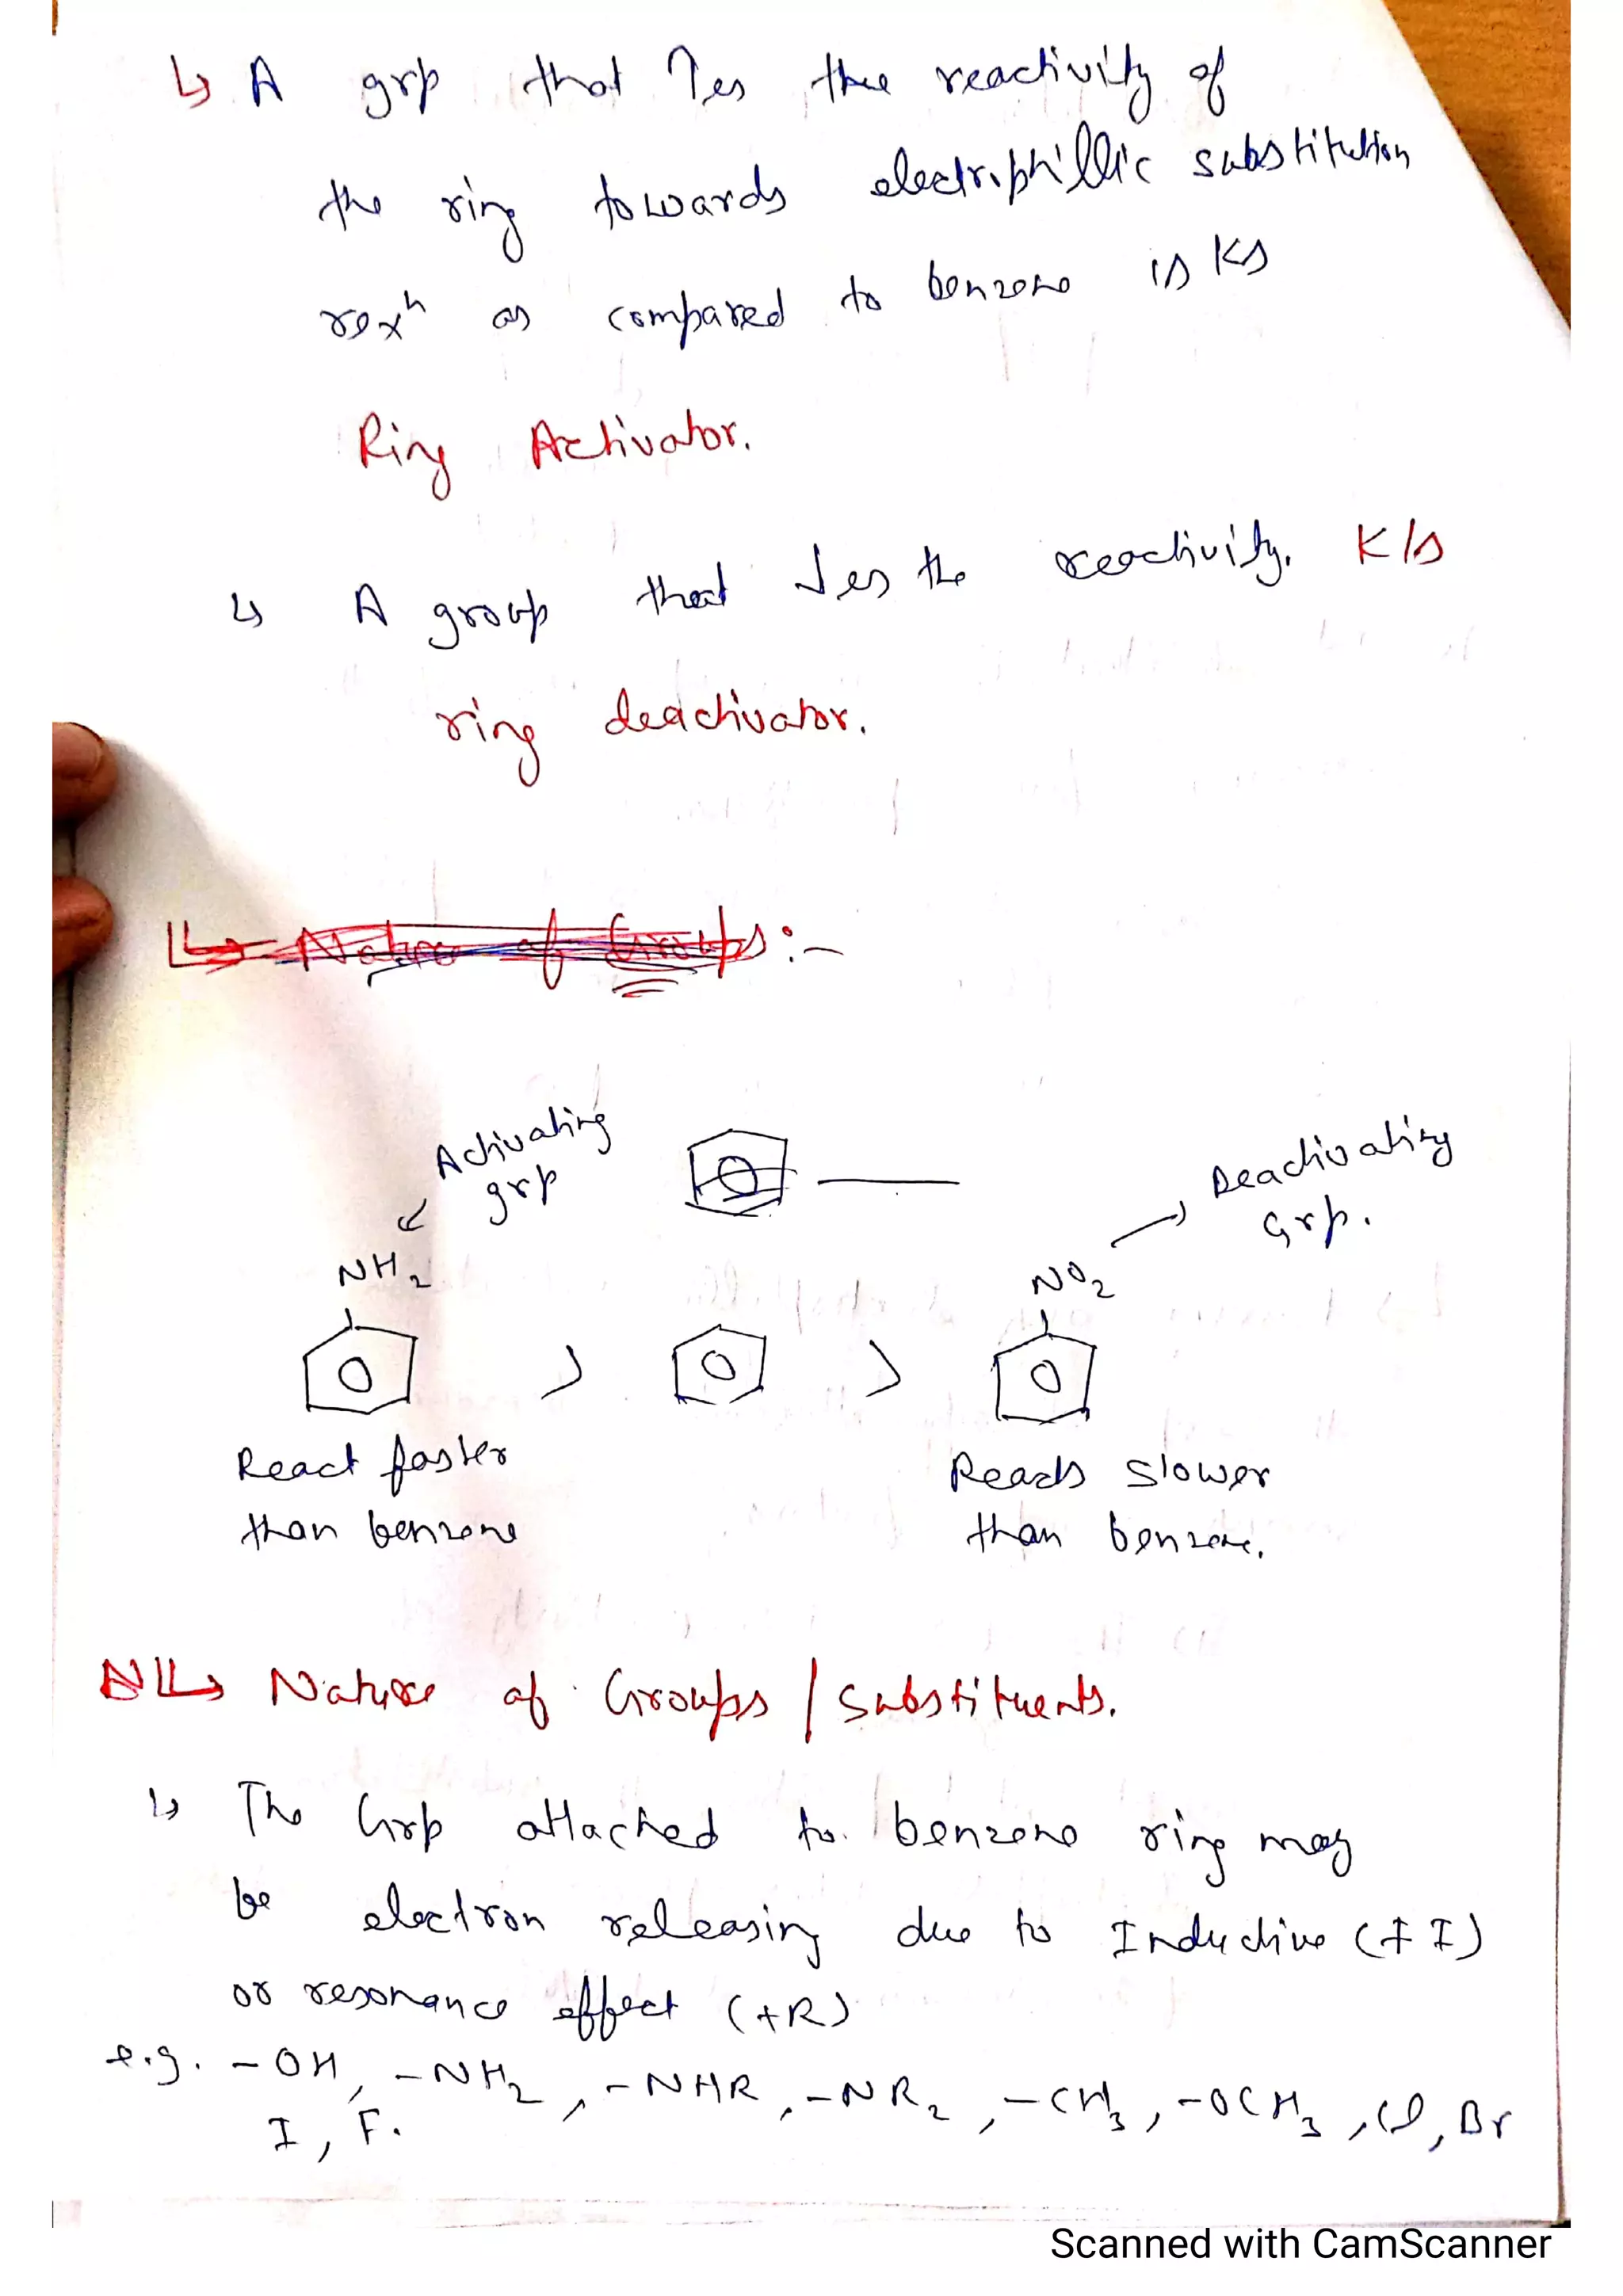 ↳ A grp that ↑es the reactivity of
the ring towards electriphillic substitution
rexn as compared to benzene is Ks
Ring Activator.
↳ A group that ↓es the reactivity. K/s
ring deactivator.
↳ Nature of Groups :-
Activating
grp
Deactivating
Grp.
NH2
NO2
> >
React faster
than benzene
Reacts slower
than benzene.
↳ Nature of Groups / Substituents.
↳ The Grp attached to benzene ring may
be electron releasing due to Inductive (+I)
or resonance effect (+R)
e.g. -OH, -NH2, -NHR, -NR2, -CH3, -OCH3, Cl, Br
I, F.
Scanned with CamScanner